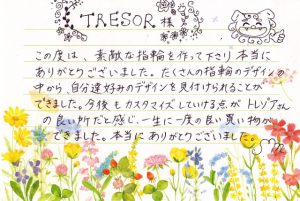 TRESOR 様
この度は、素敵な指輪を作って下さり本当に
ありがとうございました。たくさんの指輪のデザインの
中から、自分達好みのデザインを見付けられることが
できました。今後もカスタマイズしていける点がトレゾアさん
の良い所だと感じ、一生に一度の良い買い物が
できました。本当にありがとうございました。